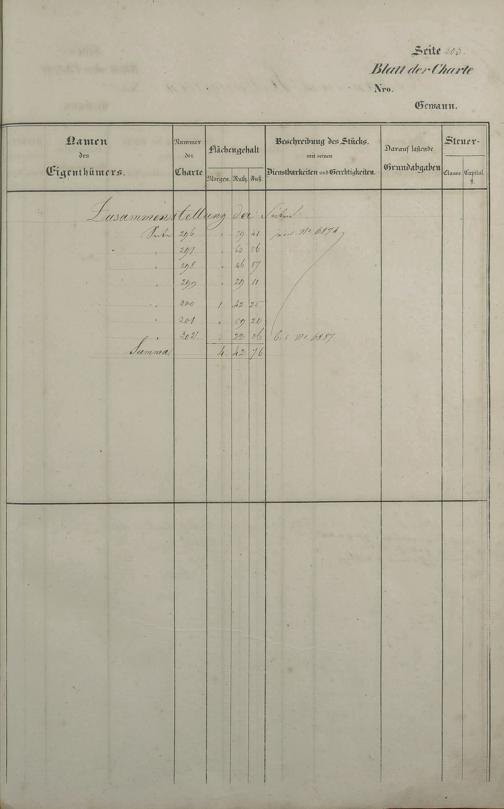 Seite 203.
Blatt der Charte
Nro.
Gewann.
Namen des Eigenthümers.
Nummer der Charte
Flächengehalt
Morgen. Ruth. Fuß.
Beschreibung des Stücks. mit seinen Dienstbarkeiten und Gerechtigkeiten.
Darauf lastende Grundabgaben
Steuer-
Classe. Capital. fl.
Zusammenstellung der Seiten
Seite 296 " 79 41
" 297
" 298 " 46 57
" 299 " 29 11
" 200 1 42 25
" 201 " 59 20
" 202 bis No. 6887.
Summa 4 42 76